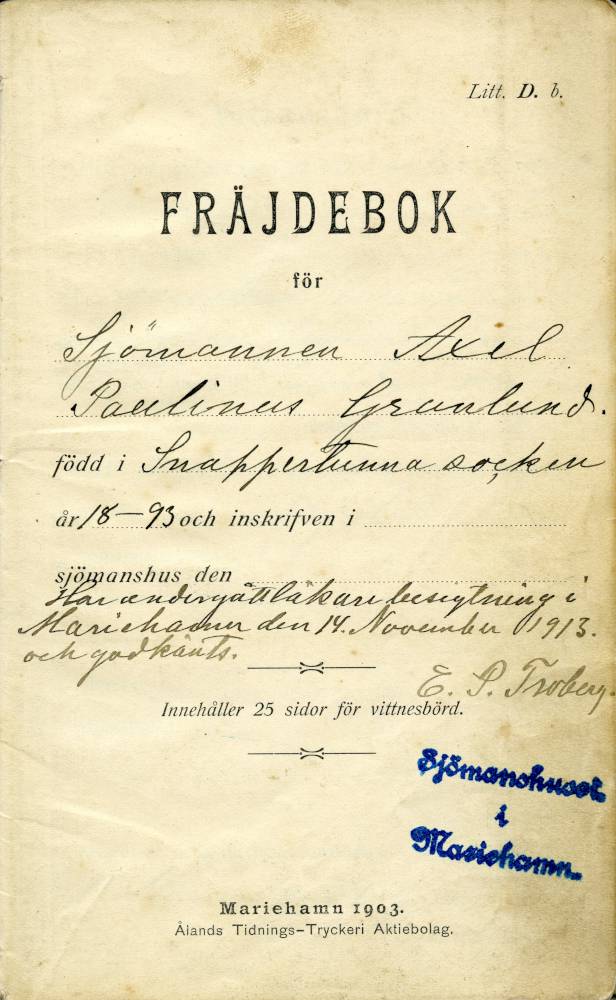 Litt. D. b.
FRÄJDEBOK
för
Sjömannen Axel
Paulinus Granlund.
född i Snappertunna socken
år 18-93 och inskrifven i
sjömanshus den
Har undergått läkarebesigtning i
Mariehamn den 14. November 1913.
och godkänts.
E. P. Troberg.
Innehåller 25 sidor för vittnesbörd.
Sjömanshuset
i
Mariehamn.
Mariehamn 1903.
Ålands Tidnings-Tryckeri Aktiebolag.